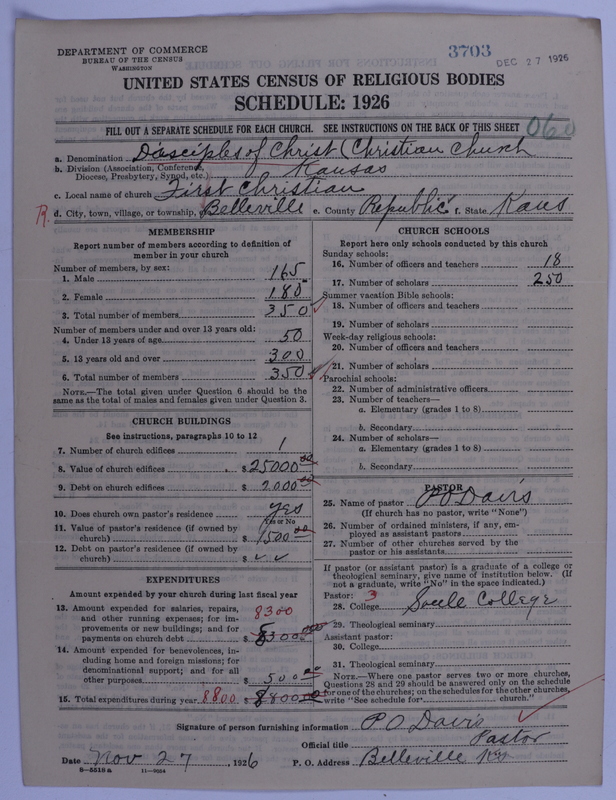 DEPARTMENT OF COMMERCE
BUREAU OF THE CENSUS
WASHINGTON
3703
DEC 27 1926
UNITED STATES CENSUS OF RELIGIOUS BODIES
SCHEDULE: 1926
FILL OUT A SEPARATE SCHEDULE FOR EACH CHURCH. SEE INSTRUCTIONS ON THE BACK OF THIS SHEET
060
a. Denomination Disciples of Christ (Christian Church
b. Division (Association, Conference, Diocese, Presbytery, Synod, etc.) Kansas
c. Local name of church First Christian
R. d. City, town, village, or township, Belleville e. County Republic f. State Kans
MEMBERSHIP
Report number of members according to definition of
member in your church
Number of members, by sex:
1. Male 165
2. Female 185
3. Total number of members 350
Number of members under and over 13 years old:
4. Under 13 years of age 50
5. 13 years old and over 300
6. Total number of members 350
NOTE.—The total given under Question 6 should be the
same as the total of males and females given under Question 3.
CHURCH BUILDINGS
See instructions, paragraphs 10 to 12
7. Number of church edifices 1
8. Value of church edifices $ 25000 00
9. Debt on church edifices $ 2000 00
10. Does church own pastor's residence yes
Yes or No
11. Value of pastor's residence (if owned by
church) $ 1500 00
12. Debt on pastor's residence (if owned by
church) $
EXPENDITURES
Amount expended by your church during last fiscal year
13. Amount expended for salaries, repairs, 8300
and other running expenses; for im-
provements or new buildings; and for
payments on church debt $ 8300 00
14. Amount expended for benevolences, in-
cluding home and foreign missions; for
denominational support; and for all
other purposes $ 500 00
15. Total expenditures during year 8800 $ 8800 00
CHURCH SCHOOLS
Report here only schools conducted by this church
Sunday schools:
16. Number of officers and teachers 18
17. Number of scholars 250
Summer vacation Bible schools:
18. Number of officers and teachers
19. Number of scholars
Week-day religious schools:
20. Number of officers and teachers
21. Number of scholars
Parochial schools:
22. Number of administrative officers
23. Number of teachers—
a. Elementary (grades 1 to 8)
b. Secondary
24. Number of scholars—
a. Elementary (grades 1 to 8)
b. Secondary
PASTOR
25. Name of pastor P O Davis
(If church has no pastor, write "None")
26. Number of ordained ministers, if any, em-
ployed as assistant pastors
27. Number of other churches served by the
pastor or his assistants
If pastor (or assistant pastor) is a graduate of a college or
theological seminary, give name of institution below. (If
not a graduate, write "No" in the space indicated.)
Pastor: 3
28. College Soule College
29. Theological seminary
Assistant pastor:
30. College
31. Theological seminary
NOTE.—Where one pastor serves two or more churches,
Questions 28 and 29 should be answered only on the schedule
for one of the churches; on the schedules for the other churches,
write "See schedule for church."
Signature of person furnishing information P O Davis
Official title Pastor
Date Nov 27, 1926 P. O. Address Belleville
8-5518a 11-9054